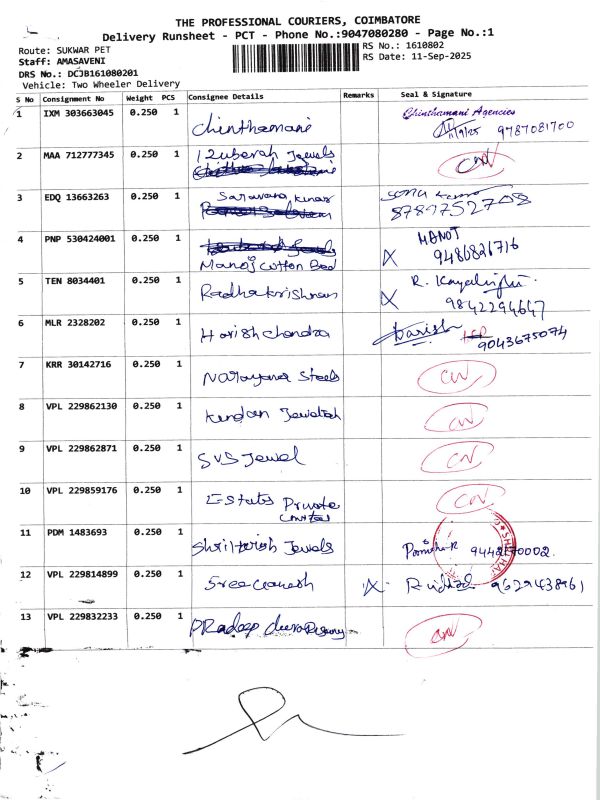 THE PROFESSIONAL COURIERS, COIMBATORE
Delivery Runsheet - PCT - Phone No.:9047080280 - Page No.:1
Route: SUKWAR PET
RS No.: 1610802
Staff: AMASAVENI
RS Date: 11-Sep-2025
DRS No.: DCJB161080201
Vehicle: Two Wheeler Delivery
S No Consignment No Weight PCS Consignee Details Remarks Seal & Signature
1 IXM 303663045 0.250 1 Chinthamani Chinthamani Agencies
9787081700
2 MAA 712777345 0.250 1 Jewels
3 EDQ 13663263 0.250 1 Saravana Kumar
8789752708
4 PNP 530424001 0.250 1 Manoj Cotton Bed MANOJ
9486826716
5 TEN 8034401 0.250 1 Radhakrishnan R.
9842294647
6 MLR 2328202 0.250 1 Harish chandra Harish
9043675074
7 KRR 30142716 0.250 1 Narayana Steels
8 VPL 229862130 0.250 1 Kundan
9 VPL 229862871 0.250 1 SVS Jewel
10 VPL 229859176 0.250 1 Estates Private
11 PDM 1483693 0.250 1 Shri Harish Jewels
12 VPL 229814899 0.250 1 Sree Ganesh 9629438961
13 VPL 229832233 0.250 1 PRadeep